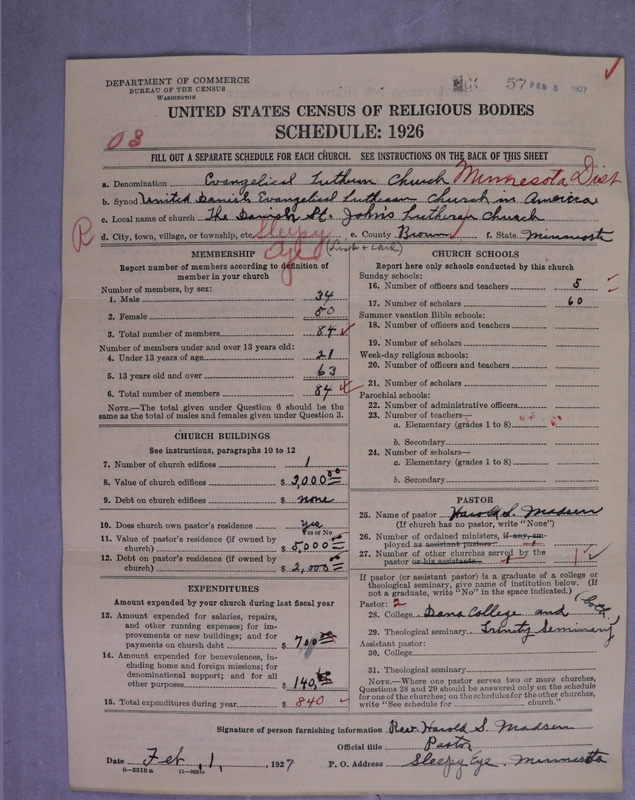 DEPARTMENT OF COMMERCE
BUREAU OF THE CENSUS
WASHINGTON
57 FEB 3 1927
UNITED STATES CENSUS OF RELIGIOUS BODIES
SCHEDULE: 1926
03
FILL OUT A SEPARATE SCHEDULE FOR EACH CHURCH. SEE INSTRUCTIONS ON THE BACK OF THIS SHEET
a. Denomination Evangelical Lutheran Church Minnesota Dist
b. Synod United Danish Evangelical Lutheran Church in America
c. Local name of church The Danish St. John's Lutheran Church
R d. City, town, village, or township, etc. Sleepy Eye (Dist + card) e. County Brown f. State Minnesota
MEMBERSHIP
Report number of members according to definition of
member in your church
Number of members, by sex:
1. Male 34
2. Female 50
3. Total number of members 84
Number of members under and over 13 years old:
4. Under 13 years of age 21
5. 13 years old and over 63
6. Total number of members 84
NOTE.—The total given under Question 6 should be
same as the total of males and females given under Question 3.
CHURCH BUILDINGS
See instructions, paragraphs 10 to 12
7. Number of church edifices 1
8. Value of church edifices $ 3,000 00
9. Debt on church edifices $ none
10. Does church own pastor's residence yes
Yes or No
11. Value of pastor's residence (if owned by
church) $ 5,000 00
12. Debt on pastor's residence (if owned by
church) $ 2,000 00
EXPENDITURES
Amount expended by your church during last fiscal year
13. Amount expended for salaries, repairs,
and other running expenses; for im-
provements or new buildings; and for
payments on church debt $ 700 00
14. Amount expended for benevolences,
including home and foreign missions; for
denominational support; and for all
other purposes $ 140,
15. Total expenditures during year $ 840
CHURCH SCHOOLS
Report here only schools conducted by this church
Sunday schools:
16. Number of officers and teachers 5
17. Number of scholars 60
Summer vacation Bible schools:
18. Number of officers and teachers
19. Number of scholars
Week-day religious schools:
20. Number of officers and teachers
21. Number of scholars
Parochial schools:
22. Number of administrative officers
23. Number of teachers—
a. Elementary (grades 1 to 8)
b. Secondary
24. Number of scholars—
a. Elementary (grades 1 to 8)
b. Secondary
PASTOR
25. Name of pastor Harold S. Madsen
(If church has no pastor, write "None")
26. Number of ordained ministers if any, em-
ployed as assistant pastor 1
27. Number of other churches served by the
pastor or his assistants 1 1
If pastor (or assistant pastor) is a graduate of a college or
theological seminary, give name of institution below. (If
not a graduate, write "No" in the space indicated.)
Pastor: 2
28. College Dana College and
29. Theological seminary Trinity Seminary
Assistant pastor:
30. College
31. Theological seminary
NOTE.—Where one pastor serves two or more churches,
Questions 28 and 29 should be answered only on the schedule
for one of the churches; on the schedules for the other churches,
write "See schedule for church."
Signature of person furnishing information Rev. Harold S. Madsen
Official title Pastor
Date Feb. 1, 1927 P. O. Address Sleepy Eye. Minnesota